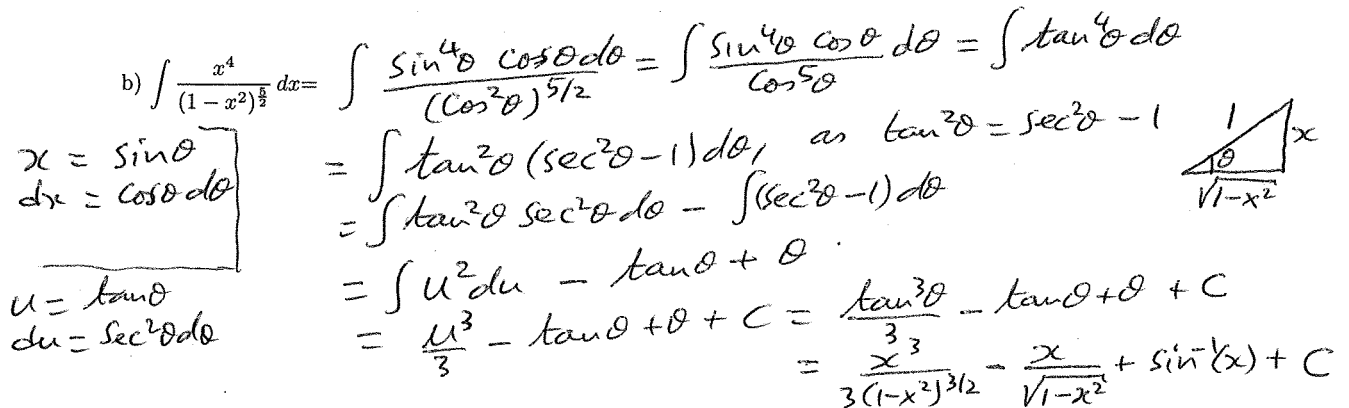 b) ∫ x⁴/(1 − x²)^(5/2) dx = ∫ sin⁴θ cosθ dθ/(cos²θ)^(5/2) = ∫ sin⁴θ cosθ/cos⁵θ dθ = ∫ tan⁴θ dθ
x = sinθ
dx = cosθ dθ
= ∫ tan²θ (sec²θ − 1) dθ, as tan²θ = sec²θ − 1
1
x
θ
√(1−x²)
= ∫ tan²θ sec²θ dθ − ∫(sec²θ − 1) dθ
u = tanθ
du = sec²θ dθ
= ∫ u² du − tanθ + θ .
= u³/3 − tanθ + θ + C = tan³θ/3 − tanθ + θ + C
= x³/3(1−x²)^(3/2) − x/√(1−x²) + sin⁻¹(x) + C